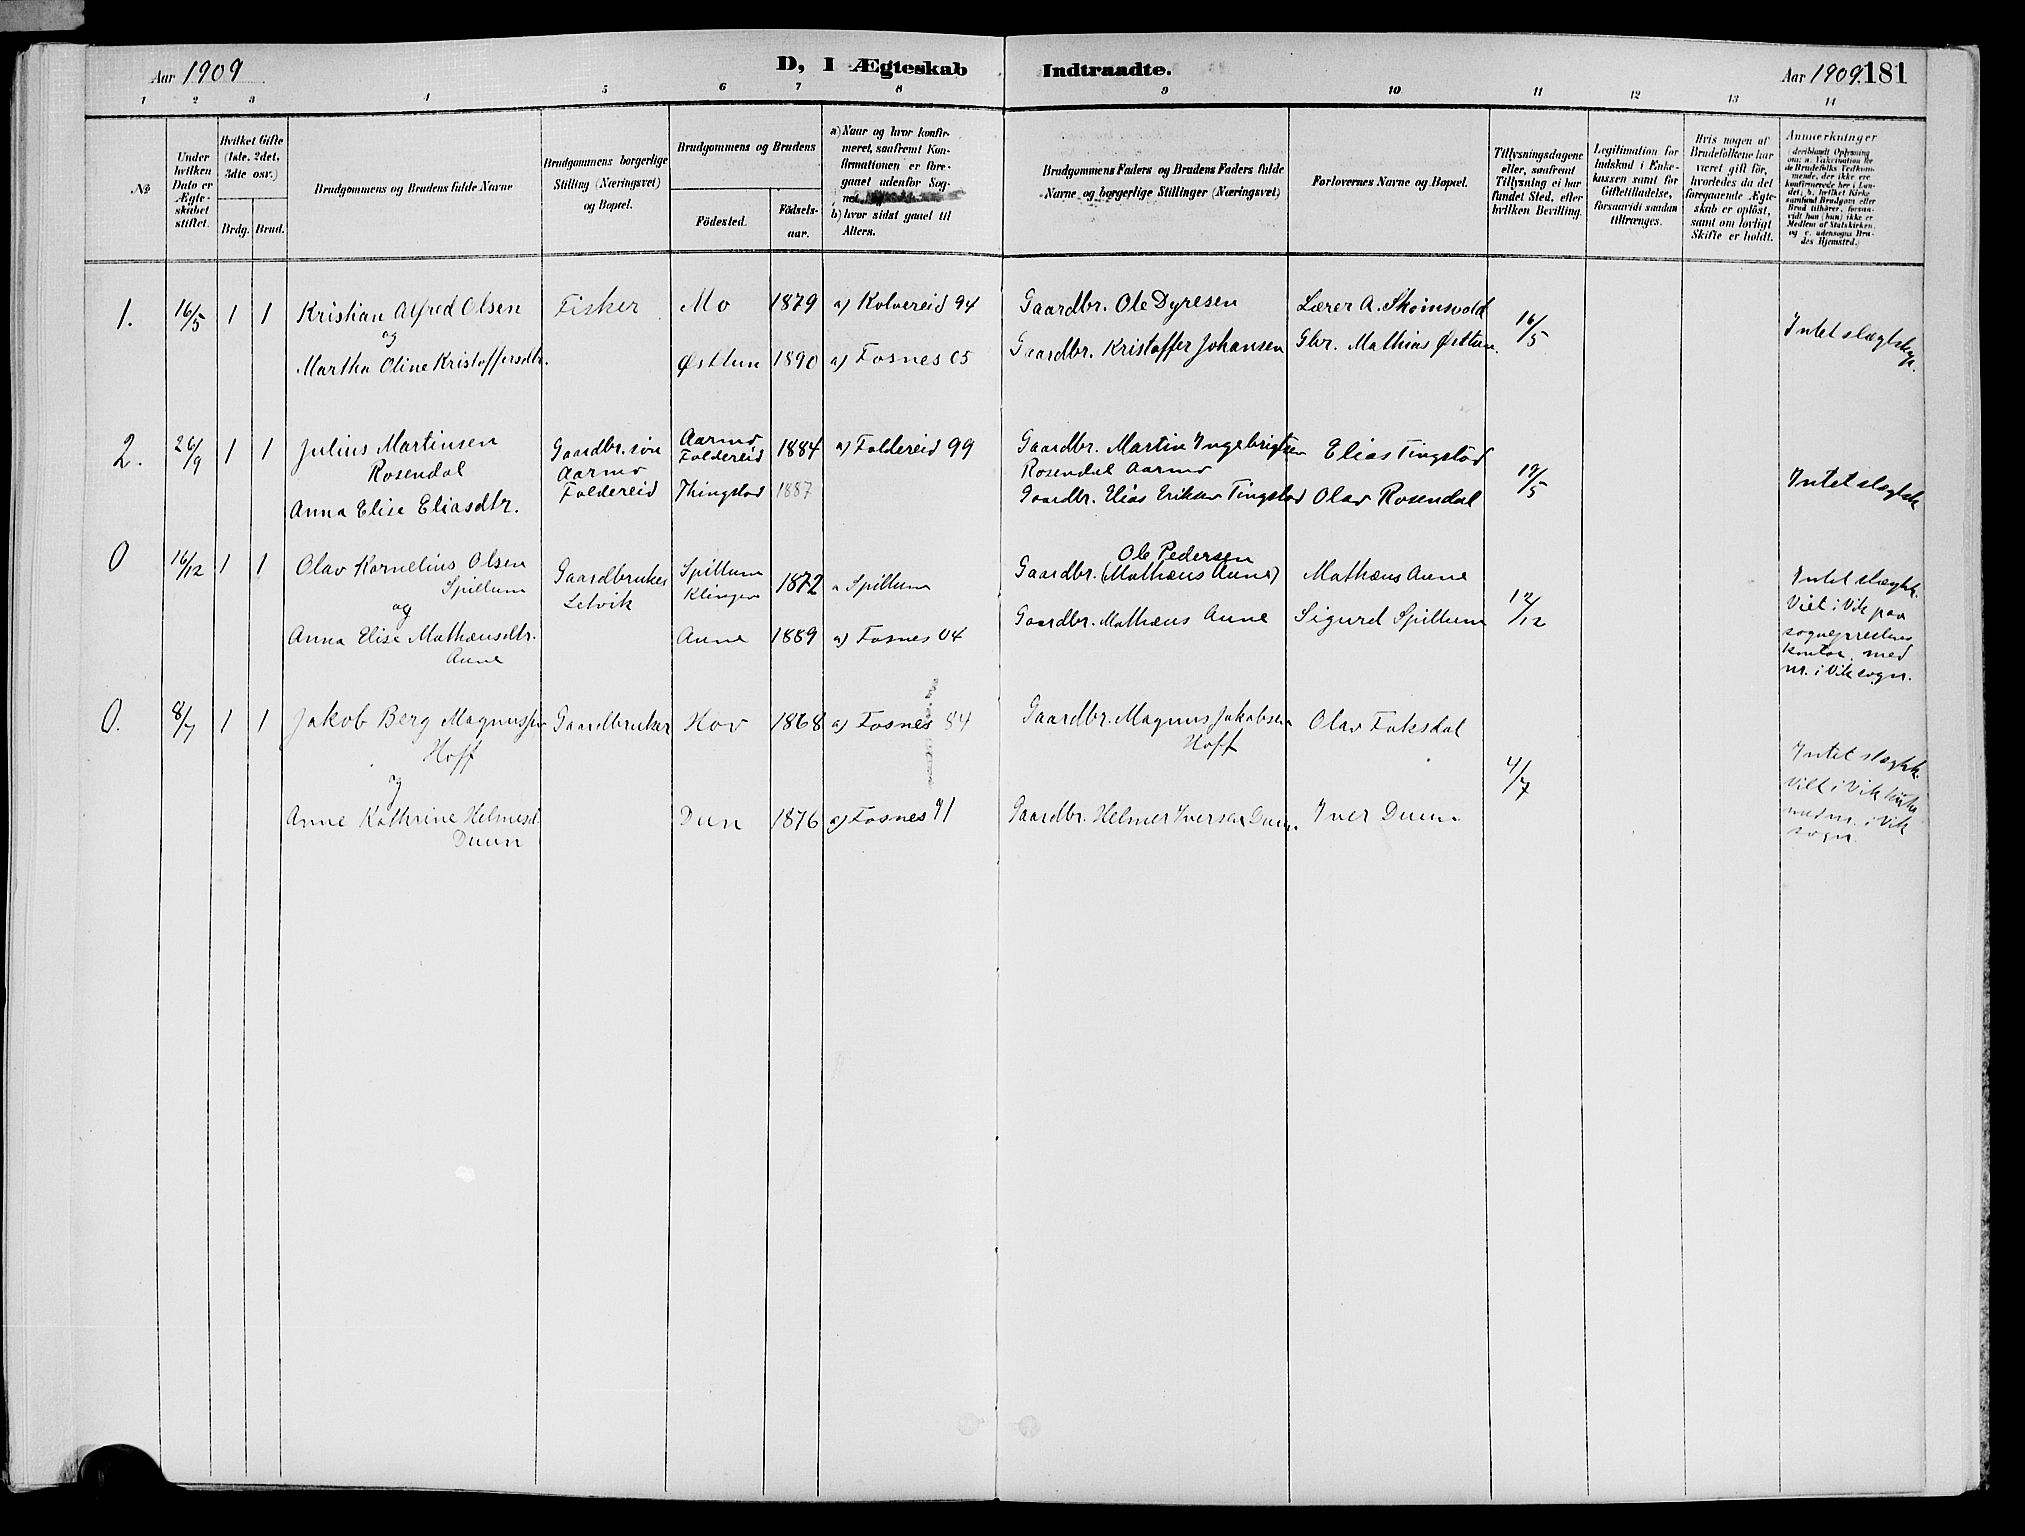 Aar 1909
D, I Ægteskab Indtraadte.
Aar 1909. 181
1 2 3 4 5 6 7 8 9 10 11 12 13 14
No
Under hvilken Dato er Ægteskabet stiftet.
Hvilket Gifte (1ste, 2det, 3dte osv.)
Brdg. Brud.
Brudgommens og Brudens fulde Navne
Brudgommens borgerlige Stilling (Næringsvei) og Bopæl.
Brudgommens og Brudens
Födested.
Födsels-aar.
a) Naar og hvor konfirmeret, saafremt Konfirmationen er foregaaet udenfor Sognet,
b) hvor sidst gaaet til Alters.
Brudgommens Faders og Brudens Faders fulde Navne og borgerlige Stillinger (Næringsvei)
Forlovernes Navne og Bopæl.
Tillysningsdagene eller, saafremt Tillysning ei har fundet Sted, efter hvilken Bevilling.
Legitimation for Indskud i Enkekassen samt for Giftetilladelse, forsaavidt saadan tiltrænges.
Hvis nogen af Brudefolkene har været gift för, hvorledes da det foregaaende Ægteskab er oplöst, samt om lovligt Skifte er holdt.
Anmerkninger (deriblandt Oplysning om: a. Vakcination for de Brudefolks Vedkommende, der ikke ere konfirmerede her i Landet, b. hvilket Kirkesamfund Brudgom eller Brud tilhörer, forsaavidt han (hun) ikke er Medlem af Statskirken, og c. udensogns Brudes Hjemsted.)
1. 16/5 1 1 Kristian Alfred Olsen Fisker Mo 1879 a) Kolvereid 94 Gaardbr. Ole Dyresen Lærer A. Skomsvold 16/5 Intet slægtskp.
og
Martha Oline Kristoffersdtr. Østtun 1890 a) Fosnes 05 Gaardbr. Kristoffer Johansen Gbr. Mathias Østtun.
2. 26/9 1 1 Julius Martinsen Gaardbr.søn Aarmo 1884 a) Foldereid 99 Gaardbr. Martin Ingebrigtsen Elias Tingstad 19/5 Intet slægtsk
Rosendal Aarmo Foldereid Rosendal Aarmo
Anna Elise Eliasdtr. Foldereid Thingstad 1887 Gaardbr. Elias Eriksen Tingstad Olav Rosendal
0 16/12 1 1 Olav Kornelius Olsen Gaardbruker Spillum 1872 a Spillum Ole Pedersen
Spillum Letvik Klingen Gaardbr. (Mathæus Aune) Mathæus Aune 12/12 Intet slægtsk.
og
Anna Elise Mathæusdtr. Aune 1889 a) Fosnes 04 Gaardbr. Mathæus Aune Sigurd Spillum
Aune
Viet i Vik paa
sogneprestens
kontor med
nr. i Vik sogn.
0. 8/7 1 1 Jakob Berg Magnussen Gaardbruker Hov 1868 a) Fosnes 84 Gaardbr. Magnus Jakobsen Olav Faksdal 4/7
Hoff Hoff
og
Intet slægtsk.
viet i Vik kirke
med nr. i Vik
sogn.
Anne Kathrine Helmersd. Dun 1876 a) Fosnes 91 Gaardbr. Helmer Iversen Duun. Iver Duun
Duun